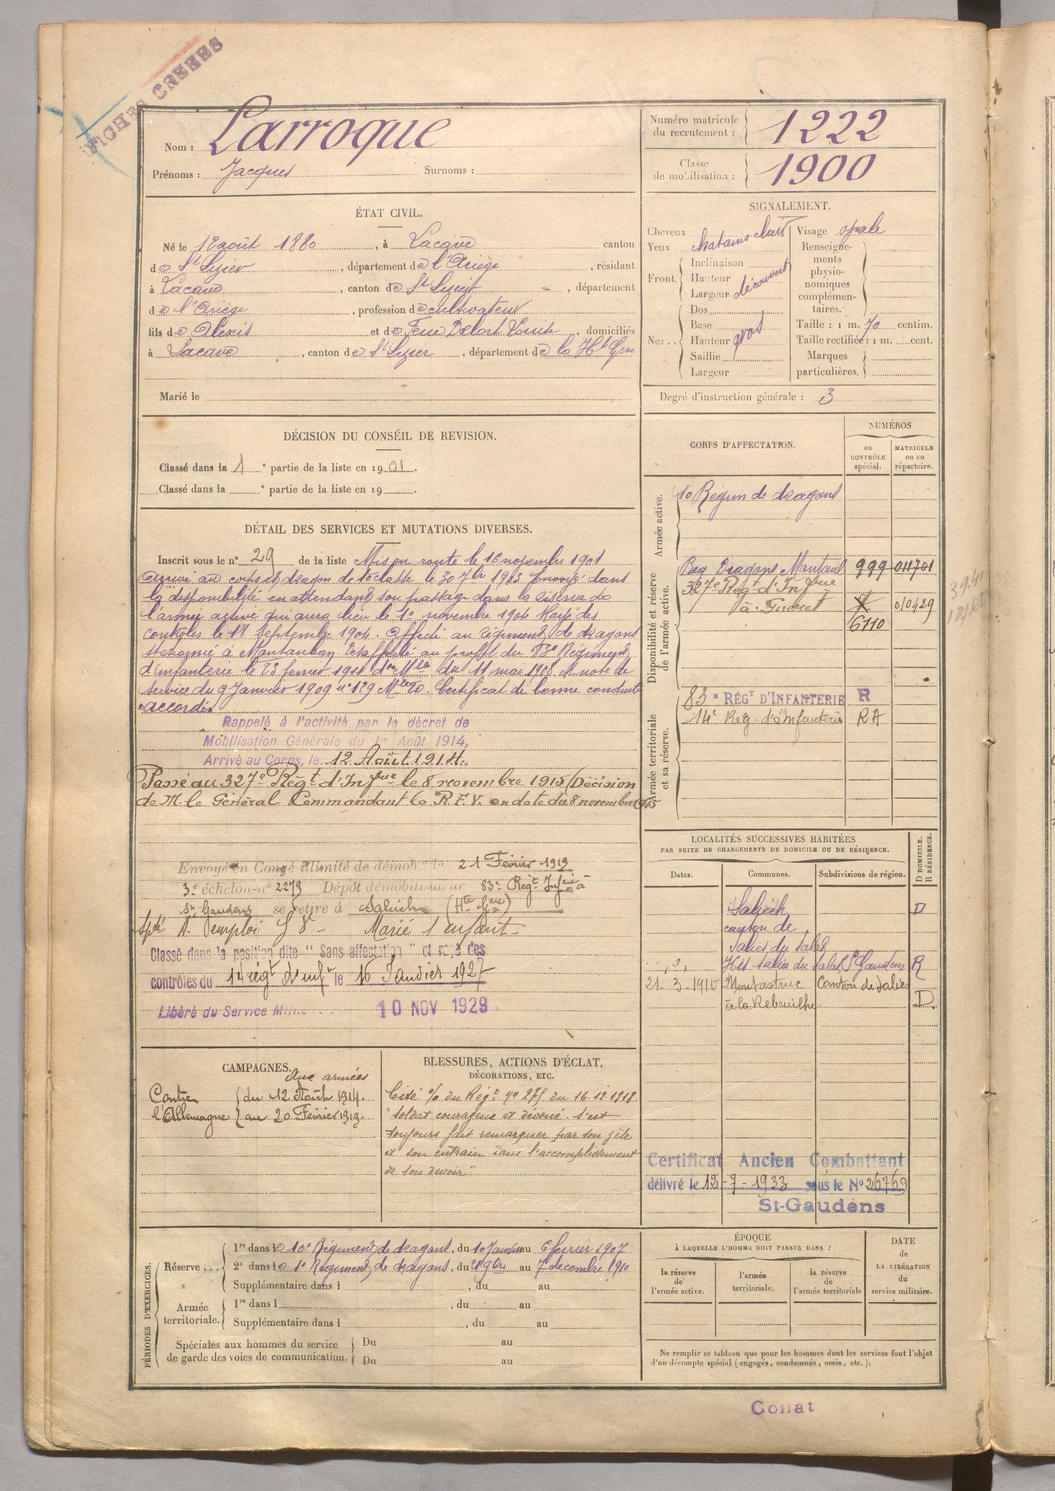 FICHES CREEES
Nom : Larroque
Prénoms : Jacques Surnoms :
Numéro matricule du recrutement : 1222
Classe de mobilisation : 1900
ÉTAT CIVIL.
Né le 12 août 1880, à Lacave canton
de St Lizier, département de l'Ariège, résidant
à Lacave, canton de St Lizier, département
de l'Ariège, profession de cultivateur
fils de Alexis et de Feue Delort Louise, domiciliés
à Lacave, canton de St Lizier, département de la Hte Gne
Marié le
SIGNALEMENT.
Cheveux
Yeux
chatains clair
Front.
Inclinaison
Hauteur
Largeur
découvert
Nez...
Dos
Base
Hauteur
Saillie
Largeur
gros
Visage ovale
Renseigne-
ments
physio-
nomiques
complémen-
taires.
Taille : 1 m. 70 centim.
Taille rectifiée : 1 m. cent.
Marques
particulières.
Degré d'instruction générale : 3
DÉCISION DU CONSEIL DE REVISION.
Classé dans la 1e partie de la liste en 1901.
Classé dans la e partie de la liste en 19 .
DÉTAIL DES SERVICES ET MUTATIONS DIVERSES.
Inscrit sous le no 29 de la liste Mis en route le 16 novembre 1901
au corps dragon de 2e classe le 30 7bre 1903 Envoyé dans
la disponibilité en attendant son passage dans la réserve de
l'armée active qui aura lieu le 1er novembre 1904 Rayé des
contrôles le 18 Septembre 1904. Affecté au régiment de dragons
stationné à Montauban. Réaffecté au profit du Régiment
d'infanterie le 23 février 1911 du 14 mai 1908 et note de
service du 9 Janvier 1909 no 129 Certificat de bonne conduite
accordé.
Rappelé à l'activité par le décret de
Mobilisation Générale du 1er Août 1914,
Arrivé au Corps, le 12 Août 1914.
Passé au 327e Régt d'Infrie le 8 novembre 1915 (Décision
de M. le Général Commandant la R.F.V. en date du 8 novembre 1915
Envoyé en Congé illimité de démob 21 Février 1919
3e échelon no 2279 Dépôt démobilisateur 83e Régt Infrie à
St Gaudens se retire à Saleich (Hte Gne)
Marié 1 enfant
Classé dans la position dite "Sans affectation" et rayé des
contrôles du 14 régt d'inf le 16 Janvier 1927
Libéré du Service Militaire 10 NOV 1929
CORPS D'AFFECTATION.
NUMÉROS
au CONTRÔLE spécial.
MATRICULE ou au répertoire.
Armée active.
10 Régim de dragons
Disponibilité et réserve de l'armée active.
Reg Dragons Montaub 999 011701
327e Régt d'Infrie 010429
6110
Armée territoriale et sa réserve.
83e RÉGT D'INFANTERIE R
14e Reg. d'Infanterie RA
LOCALITÉS SUCCESSIVES HABITÉES
PAR SUITE DE CHANGEMENTS DE DOMICILE OU DE RÉSIDENCE.
Dates. Communes. Subdivisions de région. D DOMICILE. R RÉSIDENCE.
Saleich D
canton de
Salies du Salat
Salies du Salat St Gaudens R
21-3-1910 Montastruc Canton de Salies
D
CAMPAGNES.
Aux armées
Contre du 12 Août 1914.
l'Allemagne au 20 Février 1919.
BLESSURES, ACTIONS D'ÉCLAT,
DÉCORATIONS, ETC.
Cité à l'o/ du Régt no 275 du 16.12.1918
"soldat courageux et dévoué. S'est
toujours fait remarquer par son zèle
et son entrain dans l'accomplissement
de son devoir"
Certificat Ancien Combattant
délivré le 12-7-1933 sous le No 26769
St-Gaudens
PÉRIODES D'EXERCICES.
Réserve ...
1re dans le 10e Régiment de dragons, du 10 Janvier au 6 février 1907
2e dans le 1e Régiment de dragons, du 9bre au 7 décembre 1910
Supplémentaire dans l , du au
Armée territoriale.
1re dans l , du au
Supplémentaire dans l , du au
Spéciales aux hommes du service
de garde des voies de communication.
Du au
Du au
ÉPOQUE
À LAQUELLE L'HOMME DOIT PASSER DANS :
la réserve de l'armée active.
l'armée territoriale.
la réserve de l'armée territoriale
DATE de LA LIBÉRATION du service militaire.
Ne remplir ce tableau que pour les hommes dont les services font l'objet
d'un décompte spécial (engagés, condamnés, omis, etc.).